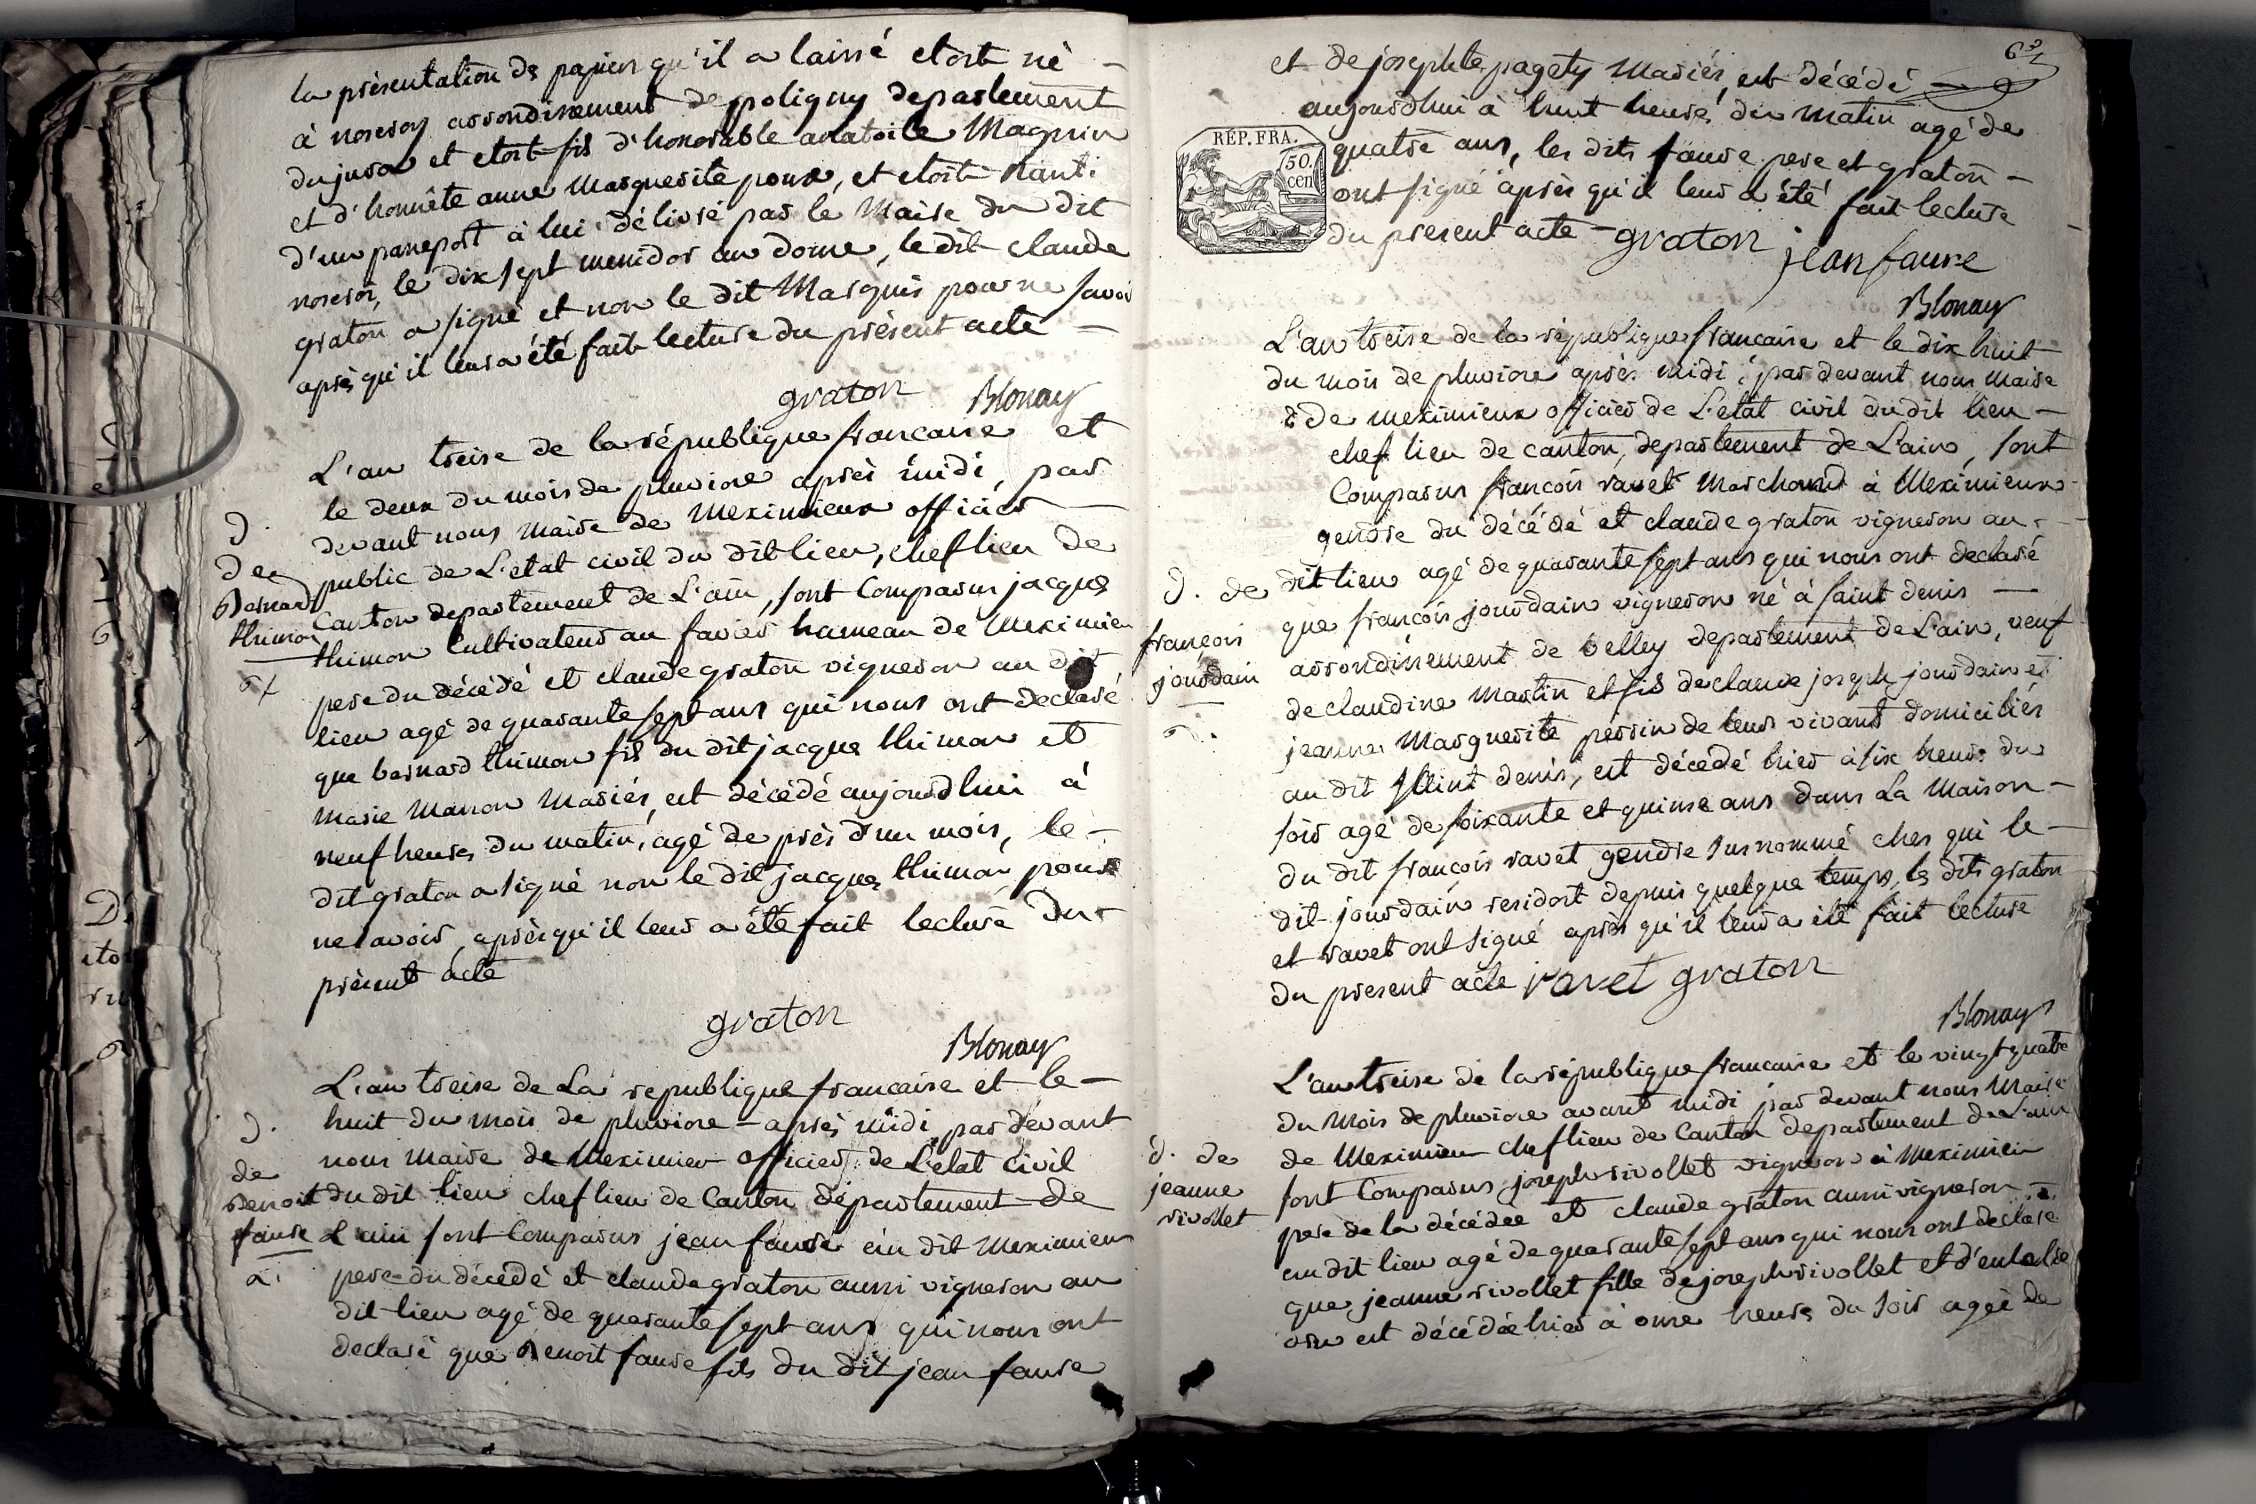 la présentation de papiers qu'il a laissé etoit né —
à noseroy arrondissement de poligny departement
du jura et etoit fils d'honorable anatoile Magnin
et d'honnête anne Marguerite poux, et etoit Nanti
d'un passeport à lui délivré par le Maire du dit
noseroi, le dix sept messidor an douze, le dit claude
graton a signé et non le dit Marquis pour ne savoir
après qu'il leur a été fait lecture du présent acte —
graton Blonay
L'an treise de la république francaise et
le deux du mois de pluviose après midi, par
devant nous maire de Meximieux officier —
public de L'etat civil du dit lieu, chef lieu de
Canton departement de L'ain, sont Comparus jacques
thimon Cultivateur au favier hameau de Meximieu
pere du décédé et claude graton vigneron au dit
lieu agé de quarante sept ans qui nous ont declaré
que bernard thimon fils du dit jacque thimon et
marie Manon Mariés, est décédé aujourdhui à
neuf heures du matin, agé de près d'un mois, le —
dit graton a signé non le dit jacques thimon pour
ne savoir, après qu'il leur a été fait lecture du
présent acte
D.
de
Bernard
thimon
graton
Blonay
L'an treise de La republique francaise et le —
huit du mois de pluviose — après midi par devant
nous maire de Meximieu officier de L'etat Civil
du dit lieu chef lieu de Canton département de
L'ain sont Comparus jean faure au dit Meximieux
pere du décédé et claude graton aussi vigneron au
dit lieu agé de quarante sept ans qui nous ont
declaré que Benoit faure fils du dit jean faure
D.
de
Benoit
faure
et de josephte pagety Mariés, est décédé —
aujourdhui à huit heures du matin agé de
quatre ans, les dits faure pere et graton —
ont signé après qu'il leur a été fait lecture
du present acte — graton jean faure
Blonay
RÉP. FRA.
50.
cen
L'an treise de la république francaise et le dix huit
du mois de pluviose après midi, par devant nous maire
de meximieux officier de L'etat civil du dit lieu —
chef lieu de canton, departement de L'ain, sont
Comparus françois ravet Marchand à Meximieux
gendre du décédé et claude graton vigneron au
dit lieu agé de quarante sept ans qui nous ont declaré
que françois jourdain vigneron né à saint denis —
arrondissement de belley departement de L'ain, veuf
de claudine Martin et fils de claude joseph jourdain et
jeanne Marguerite perrin de leur vivant domiciliés
au dit saint denis, est décédé hier à six heures du
soir agé de soixante et quinse ans dans La Maison —
du dit françois ravet gendre susnommé ches qui le —
dit jourdain residoit depuis quelque temps, les dits graton
et ravet ont signé après qu'il leur a été fait lecture
du present acte ravet graton
Blonay
D. de
françois
jourdain
L'an treise de la république francaise et le vingt quatre
du Mois de pluviose avant midi par devant nous Maire
de Meximieu chef lieu de Canton departement de L'ain
sont Comparus joseph rivollet vigneron à Meximieu
pere de la décédée et claude graton aussi vigneron —
au dit lieu agé de quarante sept ans qui nous ont declaré
que jeanne rivollet fille de joseph rivollet et d'eulalie
est décédée hier à onse heures du soir agée de
D. de
jeanne
rivollet